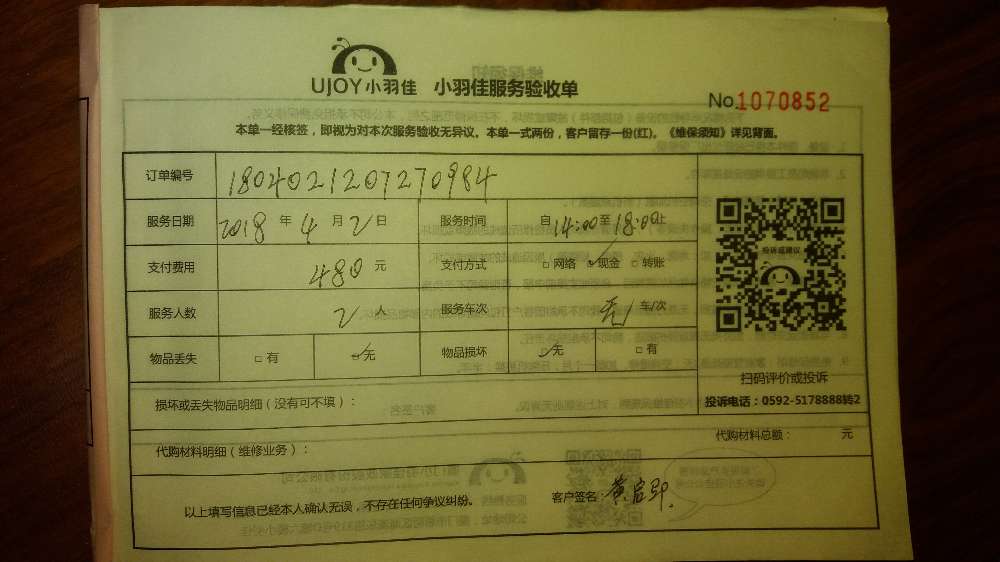 UJOY小羽佳 小羽佳服务验收单
No.1070852
本单一经核签，即视为对本次服务验收无异议。本单一式两份，客户留存一份(红)。《维保须知》详见背面。
订单编号 1804021207270984
服务日期 2018 年 4 月 2 日 服务时间 自 14:00 至 18:00 止
投诉或建议
支付费用 480 元 支付方式 □ 网络 ☑ 现金 □ 转账
服务人数 2 人 服务车次 无 车/次
物品丢失 □ 有 ☑ 无 物品损坏 ☑ 无 □ 有
扫码评价或投诉
投诉电话：0592-5178888转2
损坏或丢失物品明细（没有可不填）：
代购材料总额： 元
代购材料明细（维修业务）：
以上填写信息已经本人确认无误，不存在任何争议纠纷。 客户签名：黄